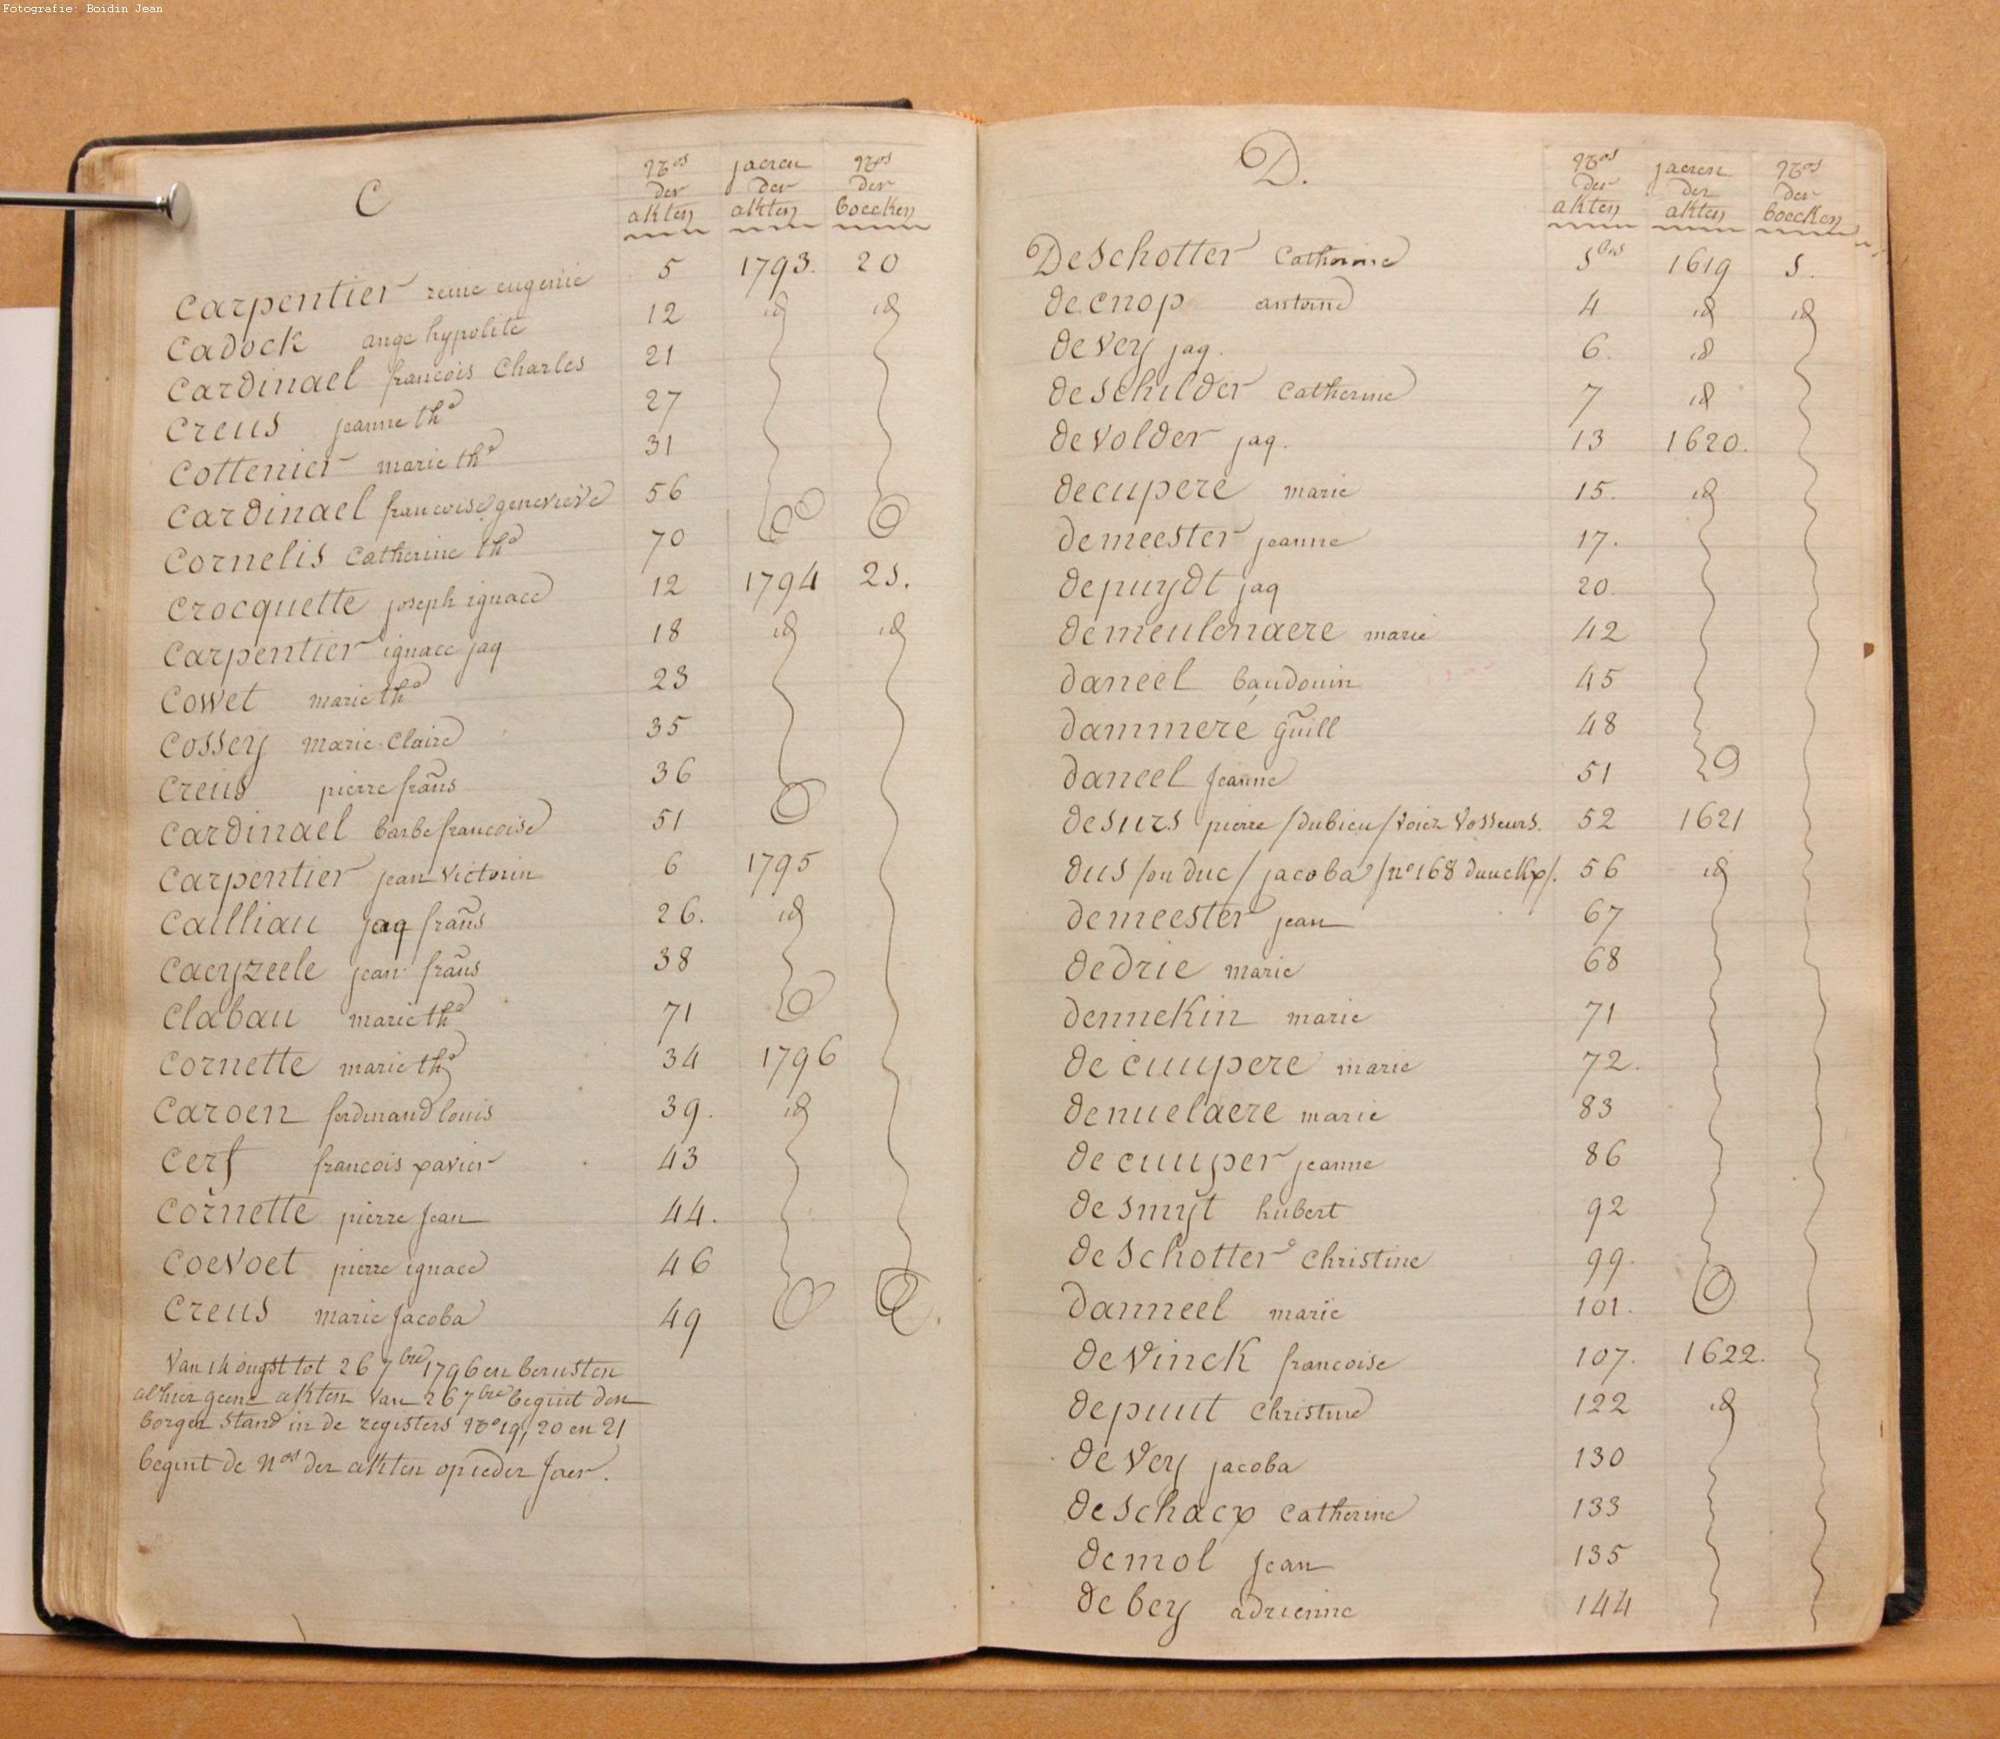 Fotografie: Boidin Jean
C
Nos der akten jaeren der akten Nos der boecken
Carpentier reine eugenie 5 1793. 20
Cadock ange hypolite 12 id id
Cardinael francois Charles 21
Creus jeanne the 27
Cottenier marie the 31
Cardinael francoise genevieve 56
Cornelis Catherine the 70
Crocquette joseph ignace 12 1794 21.
Carpentier ignace jaq 18 id id
Cowet marie the 23
Cossey marie Claire 35
Creus pierre frans 36
Cardinael barbe francoise 51
Carpentier jean Victorin 6 1795
Cailliau jaq frans 26. id
Caeyzeele jean frans 38
Clabau marie the 71
Cornette marie the 34 1796
Caroen ferdinand louis 39. id
Cerf francois xavier 43
Cornette pierre Jean 44.
Coevoet pierre ignace 46
Creus marie Jacoba 49
Van 14 ougst tot 26 7bre 1796 en berusten
alhier geene akten Van 26 7bre begint den
borger Stand in de registers No 19, 20 en 21
begint de Nos der akten op ieder Jaer.
D.
Nos der akten jaeren der akten Nos der boecken
DeSchotter Catherine 1619 1.
decnop antoine 4 id id
deVey jaq. 6. id
deschilder Catherine 7 id
deVolder jaq. 13 1620.
decupere marie 15. id
demeester jeanne 17.
depuydt jaq 20.
demeulenaere marie 42
daneel baudouin 45
dammere guill 48
daneel Jeanne 51
desurs pierre /dubieu/ Voiez Vosseurs. 52 1621
dus /ou duc/ jacoba /no 168 dunckx/. 56 id
demeester jean 67
dedrie marie 68
dennekin marie 71
de cuupere marie 72.
denuelaere marie 83
de cuuper jeanne 86
de smyt hubert 92
de Schotter Christine 99.
danneel marie 101.
deVinck francoise 107. 1622.
depuut Christine 122 id
de Vey jacoba 130
deschacx Catherine 133
demol Jean 135
de bey adrienne 144